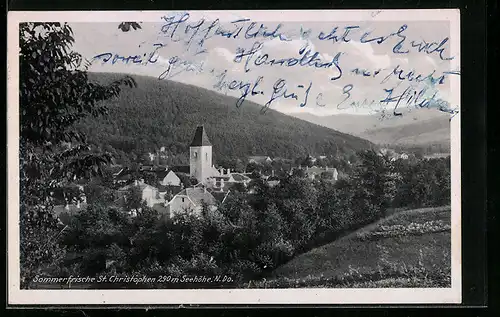 Hoffentlich geht es Euch
soweit gut. Harrolds
herzl. Grüße Eure Hilde
Sommerfrische St. Christophen 290 m Seehöhe, N.Do.